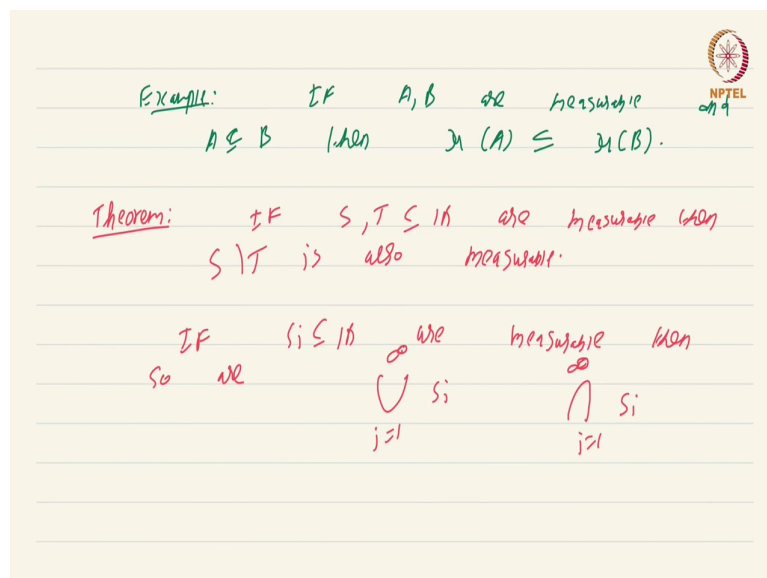 NPTEL
Example: IF A, B are measurable and
A ⊆ B then μ(A) ≤ μ(B).
Theorem: IF S, T ⊆ ℝ are measurable then
S \ T is also measurable.
IF Si ⊆ ℝ are measurable then
so are ∞ ⋃ i=1 Si ∞ ⋂ i=1 Si